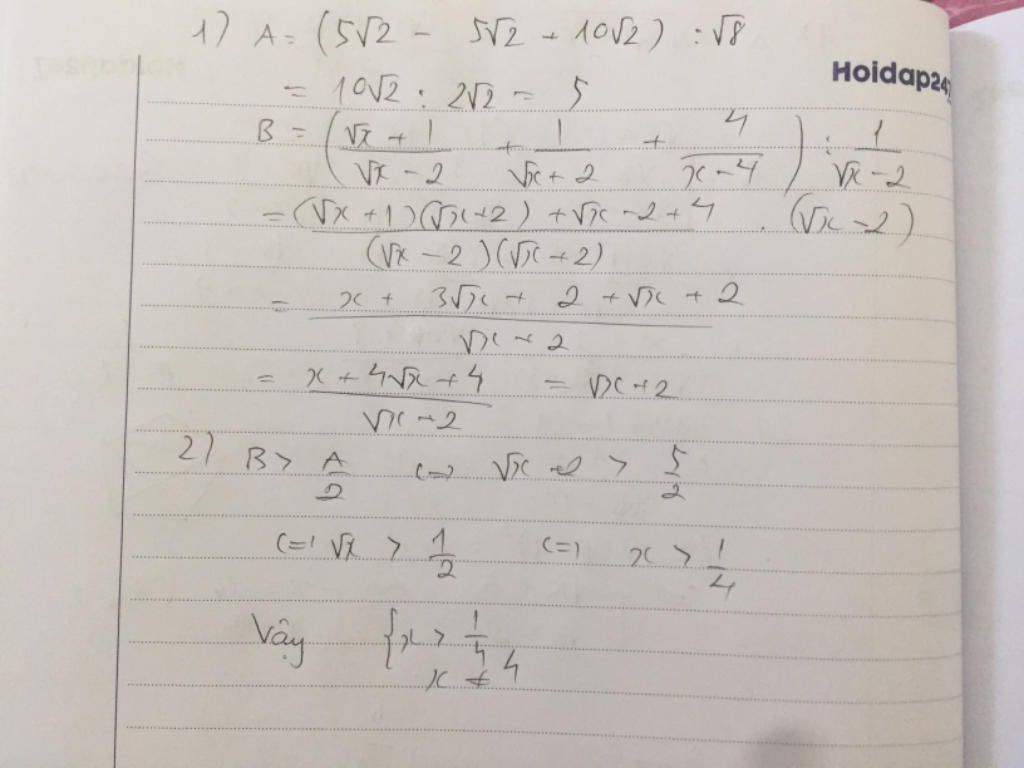 1) A = (5√2 - 5√2 + 10√2) : √8
Hoidap247
= 10√2 : 2√2 = 5
B = ((√x + 1)/(√x - 2) + 1/(√x + 2) + 4/(x - 4)) : 1/(√x - 2)
= ((√x + 1)(√x + 2) + √x - 2 + 4)/((√x - 2)(√x + 2)) . (√x - 2)
= (x + 3√x + 2 + √x + 2)/(√x + 2)
= (x + 4√x + 4)/(√x + 2) = √x + 2
2) B > A/2 <=> √x + 2 > 5/2
<=> √x > 1/2 <=> x > 1/4
Vậy { x > 1/4
x ≠ 4